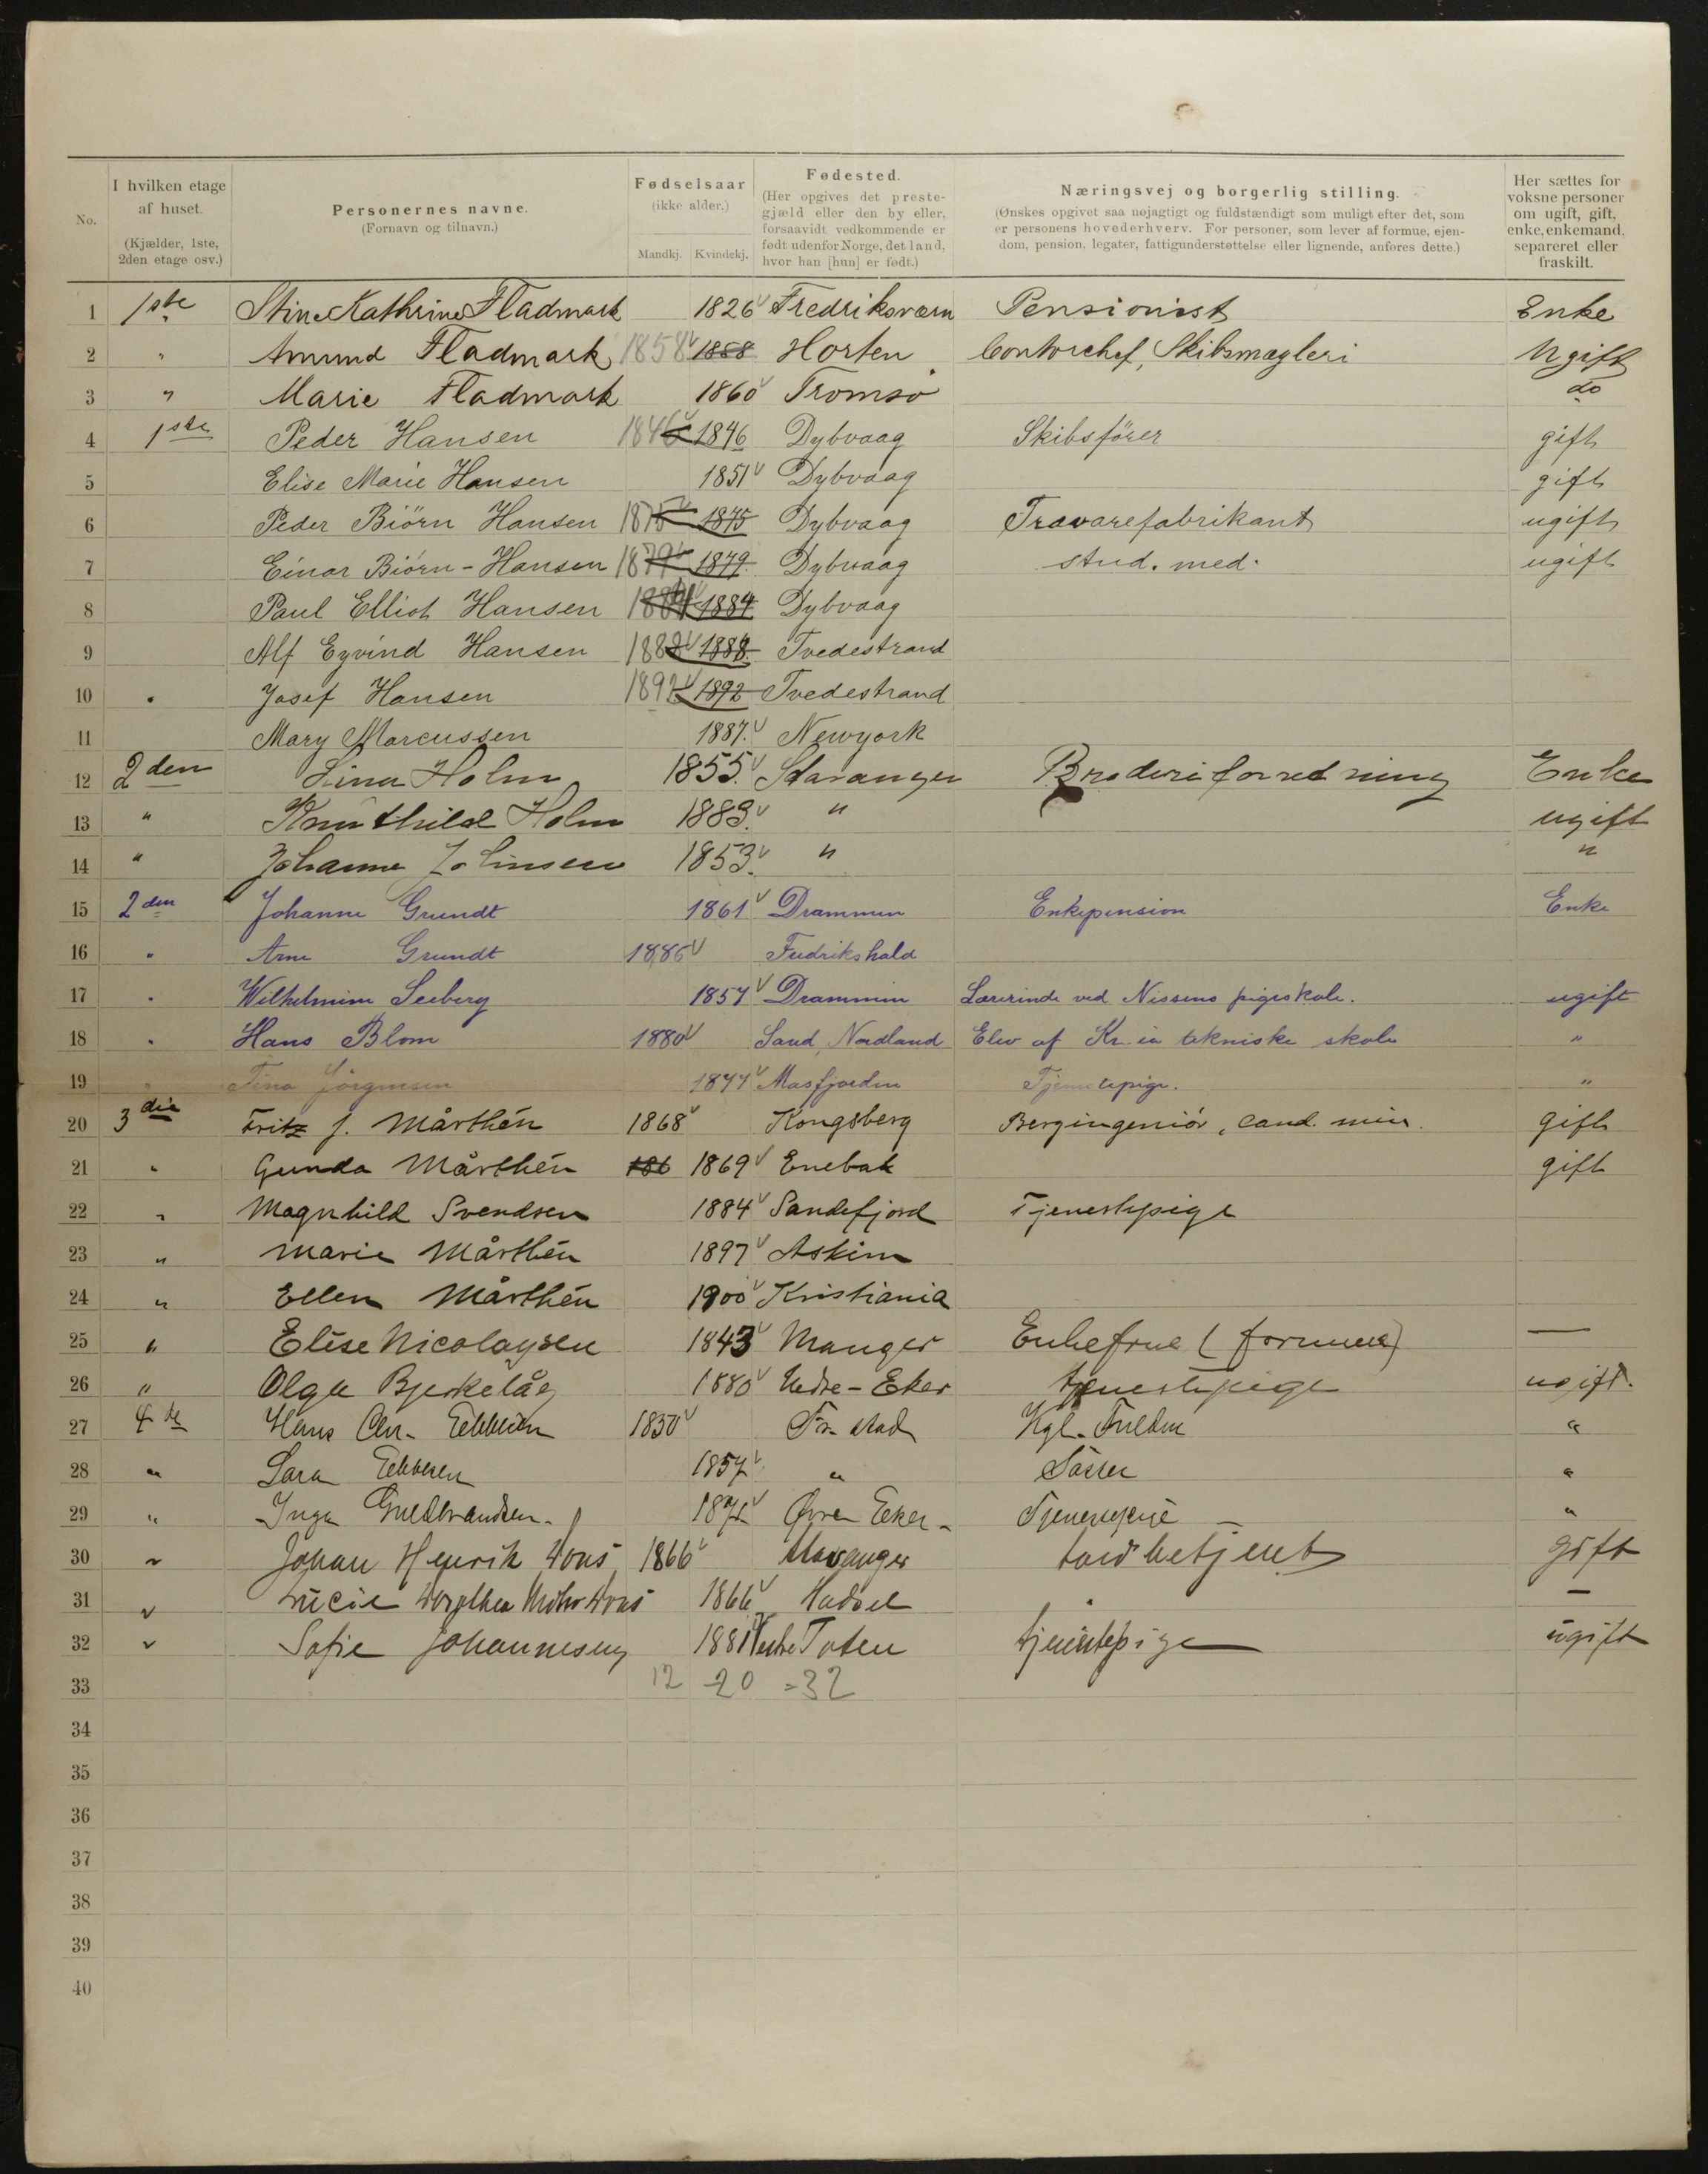 No. | I hvilken etage af huset. (Kjælder, 1ste, 2den etage osv.) | Personernes navne. (Fornavn og tilnavn.) | Fødselsaar (ikke alder.) Mandkj. Kvindekj. | Fødested. (Her opgives det prestegjæld eller den by eller, forsaavidt vedkommende er født udenfor Norge, det land, hvor han [hun] er født.) | Næringsvej og borgerlig stilling. (Ønskes opgivet saa nøjagtigt og fuldstændigt som muligt efter det, som er personens hovederhverv. For personer, som lever af formue, ejendom, pension, legater, fattigunderstøttelse eller lignende, anføres dette.) | Her sættes for voksne personer om ugift, gift, enke, enkemand, separeret eller fraskilt.
1 1ste Stine Kathrine Fladmark 1826 Fredriksværn Pensionist Enke
2 " Amund Fladmark 1858 1858 Horten Contorchef, Skibsmægleri Ugift
3 " Marie Fladmark 1860 Tromsø do
4 1ste Peder Hansen 1846 1846 Dybvaag Skibsfører gift
5 Elise Marie Hansen 1851 Dybvaag gift
6 Peder Biörn Hansen 1875 1875 Dybvaag Trævarefabrikant ugift
7 Einar Biörn-Hansen 1879 1879 Dybvaag stud. med. ugift
8 Paul Elliot Hansen 1884 1884 Dybvaag
9 Alf Eyvind Hansen 1888 1888 Tvedestrand
10 " Josef Hansen 1892 1892 Tvedestrand
11 Mary Marcussen 1887. Newyork
12 2den Lina Holm 1855. Stavanger Broderiforretning Enke
13 " Holm 1883. " ugift
14 " Johanne Johnsen 1853. " "
15 2den Johanne Grundt 1861 Drammen Enkepension Enke
16 " Arne Grundt 1886 Fredrikshald
17 " Wilhelmine Seeberg 1857 Drammen Lærerinde ved Nissens pigeskole. ugift
18 " Hans Blom 1880 Sand, Nordland Elev af Kr.ia tekniske skole "
19 " Tina Jörgensen 1877 Masfjorden Tjenestepige. "
20 3die Fritz J. Mårthén 1868 Kongsberg Bergingeniør, cand. min. gift
21 " Gunda Mårthén 186 1869 Enebak gift
22 " Magnhild Svendsen 1884 Sandefjord Tjenestepige
23 " Marie Mårthén 1897 Askim
24 " Ellen Mårthén 1900 Kristiania
25 " Elise Nicolaysen 1843 Manger Enkefrue (formue) —
26 " Olga Bjerkelåg 1880 Nedre-Eker tjenestepige ugift.
27 4de Hans Chr. Ebbesen 1850 Fr.stad Kgl. Fuldm "
28 " Sara Ebbesen 1857 " Søster "
29 " Inga Guldbrandsen. Øvre Eker Tjenestepige "
30 " Johan Henrik 1866 Stavanger toldbetjent gift
31 " 1866 Hadsel —
32 " Sofie Johannesen 1881 Vestre Toten tjenestepige ugift
33 12 20 = 32
34
35
36
37
38
39
40